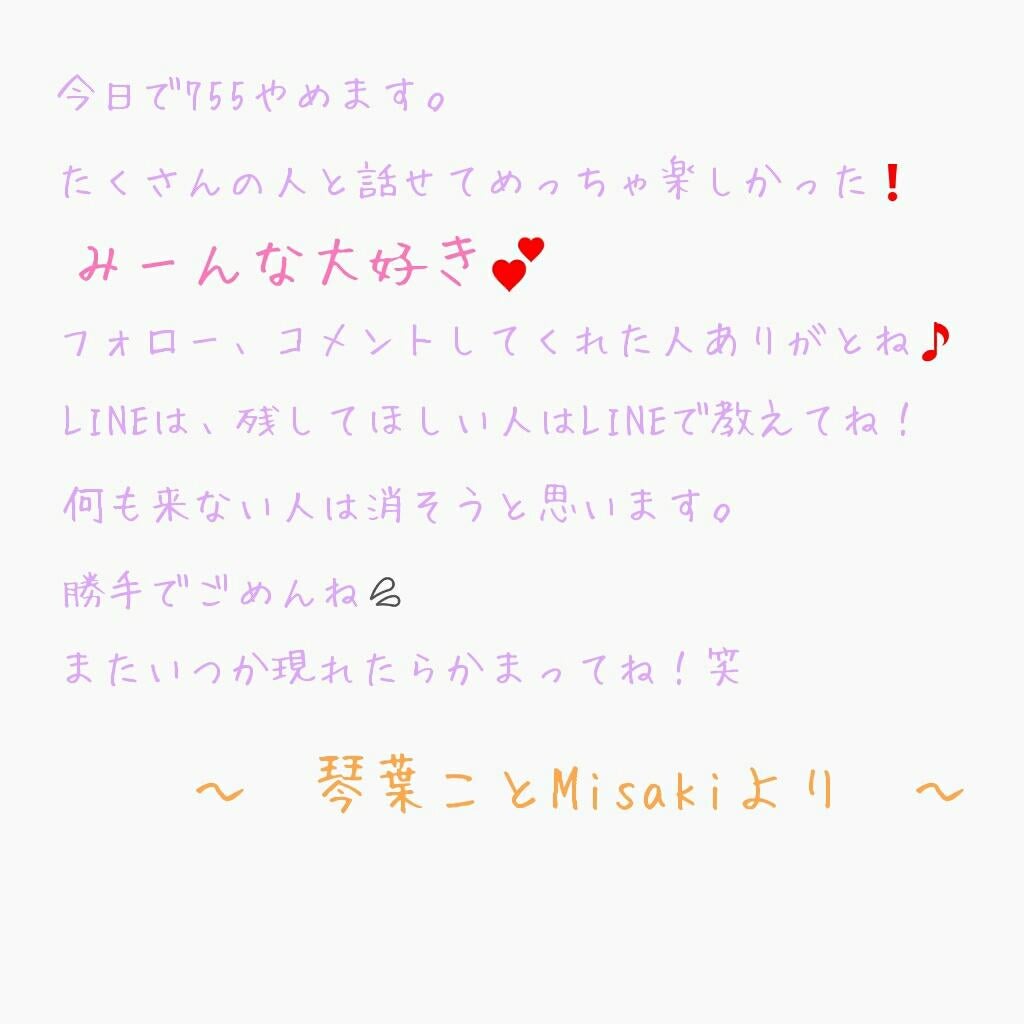 今日で755やめます。
たくさんの人と話せてめっちゃ楽しかった❗
みーんな大好き💕
フォロー、コメントしてくれた人ありがとね♪
LINEは、残してほしい人はLINEで教えてね！
何も来ない人は消そうと思います。
勝手でごめんね💦
またいつか現れたらかまってね！笑
～　琴葉ことMisakiより　～